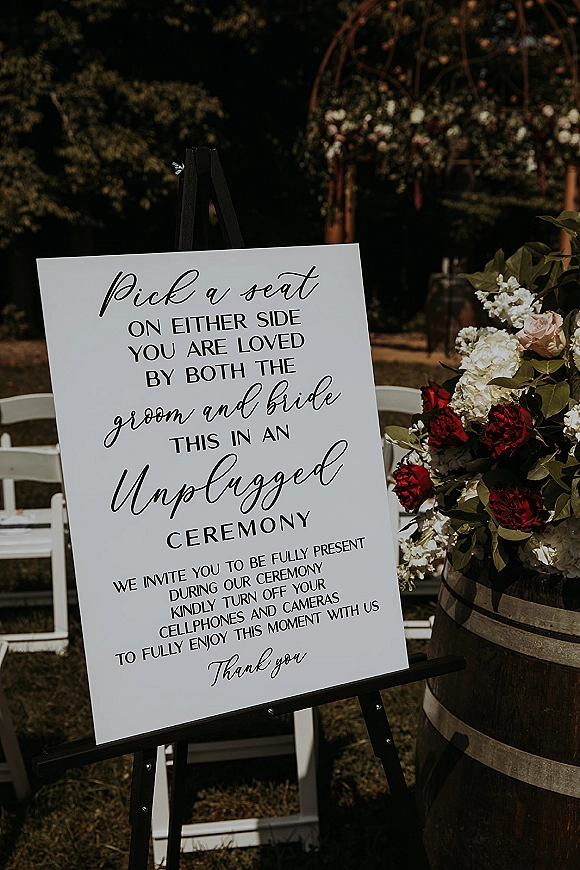 Pick a seat
ON EITHER SIDE
YOU ARE LOVED
BY BOTH THE
groom and bride
THIS IN AN
Unplugged
CEREMONY
WE INVITE YOU TO BE FULLY PRESENT
DURING OUR CEREMONY
KINDLY TURN OFF YOUR
CELLPHONES AND CAMERAS
TO FULLY ENJOY THIS MOMENT WITH US
Thank you